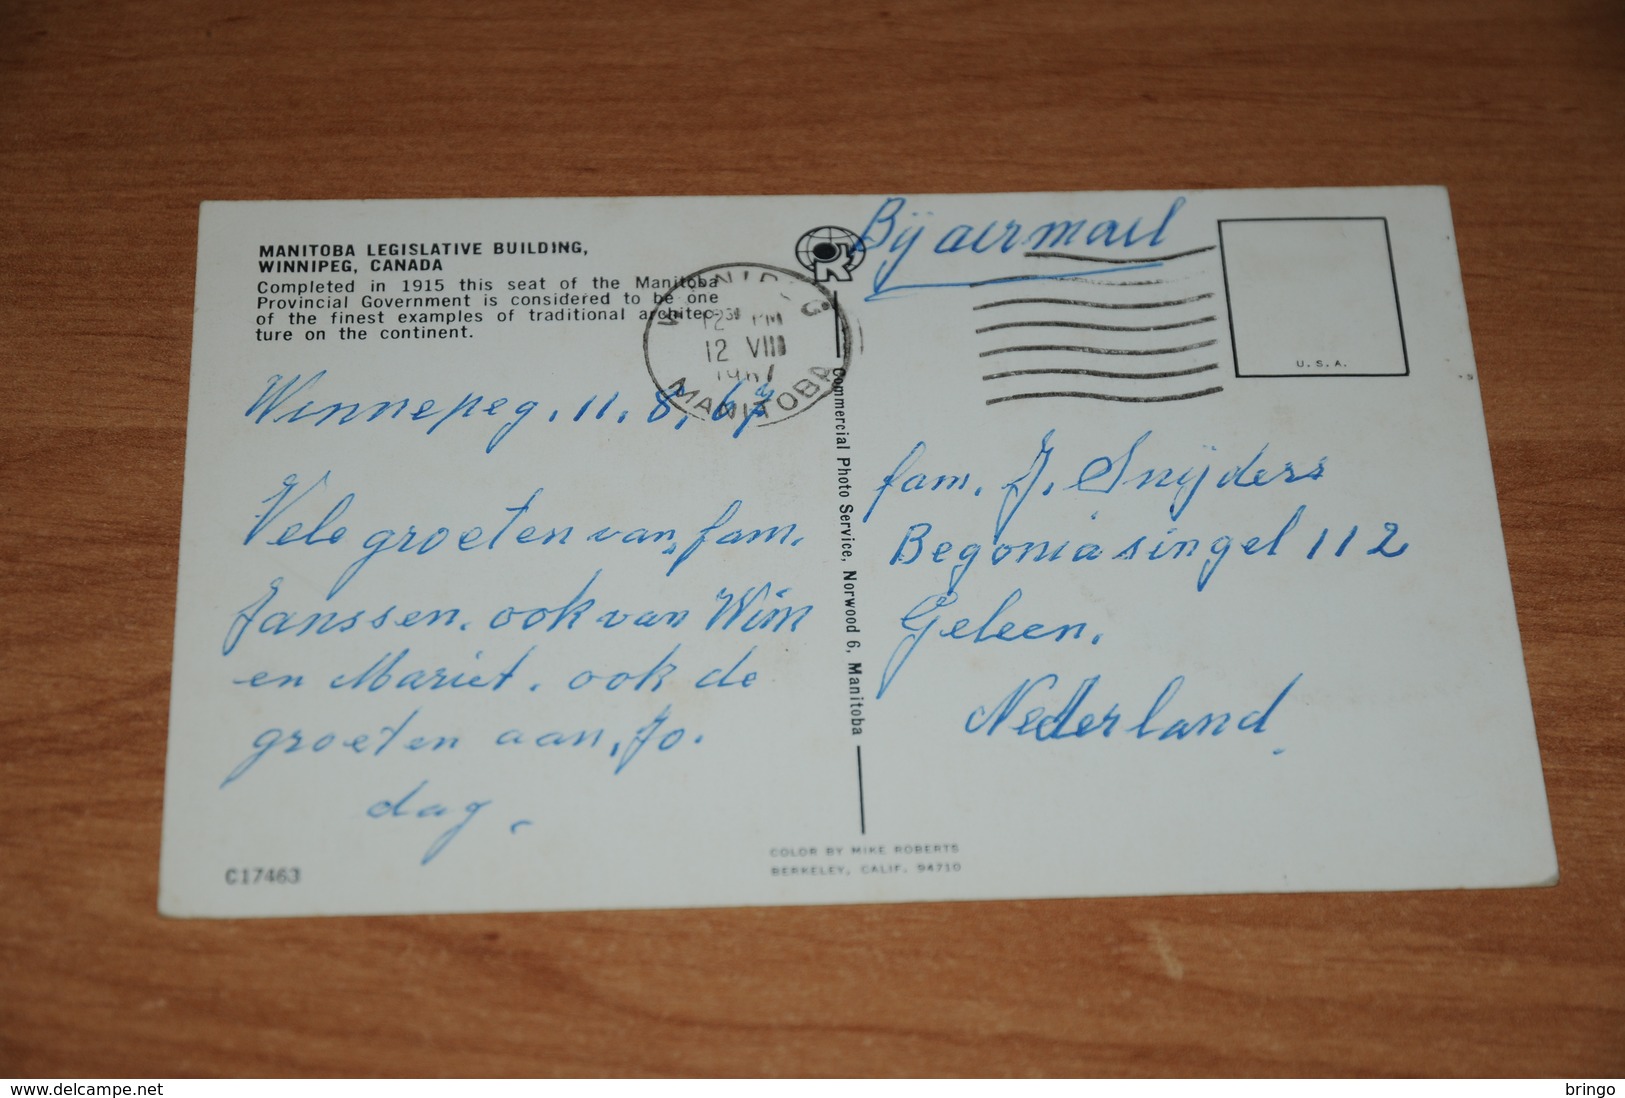 MANITOBA LEGISLATIVE BUILDING,
WINNIPEG, CANADA
Completed in 1915 this seat of the Manitoba
Provincial Government is considered to be one
of the finest examples of traditional architec-
ture on the continent.
WINNIPEG
12 PM
12 VIII
1967
MANITOBA
Winnepeg. 11.8.67
Vele groeten van fam.
Janssen. ook van Wim
en Mariet. ook de
groeten aan, Jo.
dag.
C17463
Commercial Photo Service, Norwood 6, Manitoba
COLOR BY MIKE ROBERTS
BERKELEY, CALIF. 94710
Bij airmail
U.S.A.
fam. J. Snijders
Begoniasingel 112
Geleen.
Nederland.
www.delcampe.net
bringo